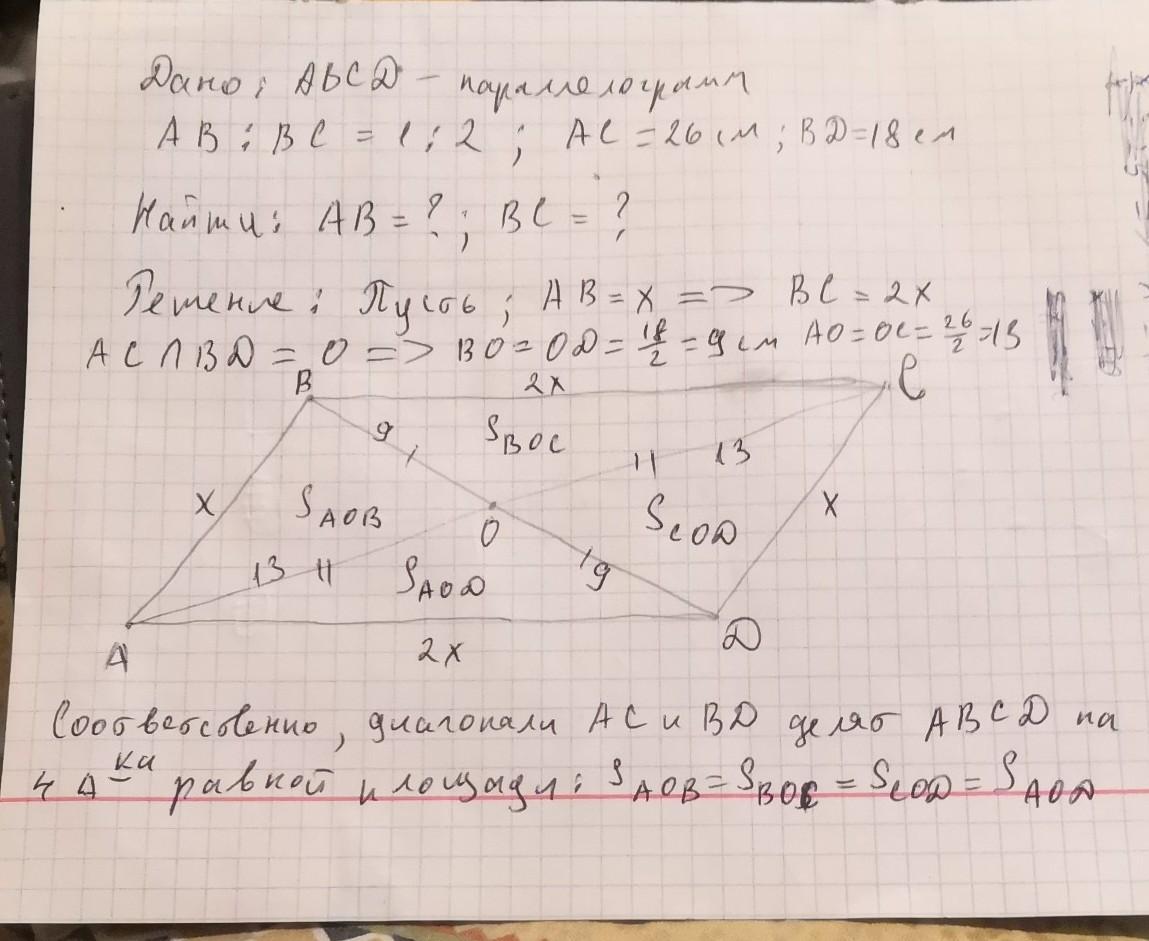 Дано: ABCD – параллелограмм
AB : BC = 1 : 2 ; AC = 26 см ; BD = 18 см
Найти: AB = ? ; BC = ?
Решение: Пусть ; AB = x => BC = 2x
AC ∩ BD = O => BO = OD = 18/2 = 9 см AO = OC = 26/2 = 13
B 2x C
9 S BOC
11 13
x S AOB S COD x
O
13 11 S AOD 9
A 2x D
Соответственно, диагонали AC и BD делят ABCD на
4 Δ ка равной площади: S AOB = S BOC = S COD = S AOD